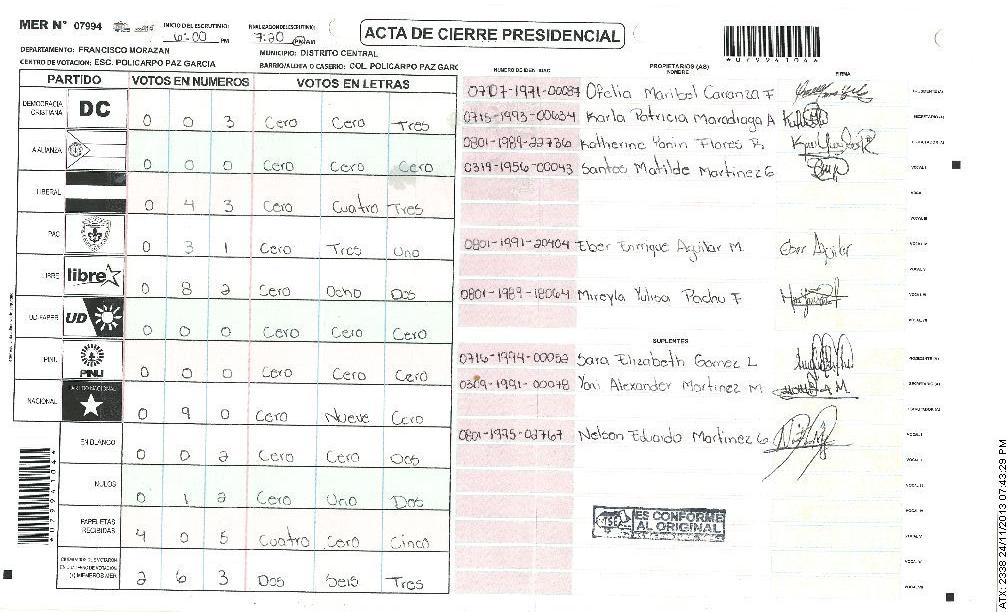 MER N° 07994
INICIO DEL ESCRUTINIO:
6:00 PM
FINALIZACION DEL ESCRUTINIO:
7:20 PM AM
ACTA DE CIERRE PRESIDENCIAL
DEPARTAMENTO: FRANCISCO MORAZAN
MUNICIPIO: DISTRITO CENTRAL
CENTRO DE VOTACION: ESC. POLICARPO PAZ GARCIA
BARRIO/ALDEA O CASERIO: COL. POLICARPO PAZ GARC
PARTIDO VOTOS EN NUMEROS VOTOS EN LETRAS
DEMOCRACIA CRISTIANA DC 0 0 3 Cero Cero Tres
ALIANZA 0 0 0 Cero Cero Cero
LIBERAL 0 4 3 Cero Cuatro Tres
PAC 0 3 1 Cero Tres Uno
LIBRE libre 0 8 2 Cero Ocho Dos
UD-FAPER UD 0 0 0 Cero Cero Cero
PINU PINU 0 0 0 Cero Cero Cero
NACIONAL PARTIDO NACIONAL 0 9 0 Cero Nueve Cero
EN BLANCO 0 0 2 Cero Cero Dos
NULOS 0 1 2 Cero Uno Dos
PAPELETAS RECIBIDAS 4 0 5 Cuatro Cero Cinco
(+) MIEMBROS MER 2 6 3 Dos Seis Tres
NUMERO DE IDENTIDAD PROPIETARIOS (AS) NOMBRE FIRMA
0707-1971-00087 Ofelia Maribel Caranza F
0715-1993-00634 Karla Patricia Maradiaga A
0801-1989-22736 Katherine Yanin Flores R.
0319-1956-00043 Santos Matilde Martinez G
0801-1991-20404 Eber Enrique Aguilar M.
0801-1989-18064 Mireyla Yulisa Pachu F
SUPLENTES
0716-1994-00052 Sara Elizabeth Gomez L
0309-1991-00078 Yoni Alexander Martinez M.
0801-1975-02767 Nelson Eduardo Martinez G
TSE ES CONFORME
AL ORIGINAL
*079941046*
ATX: 2338 24/11/2013 07:43:29 PM